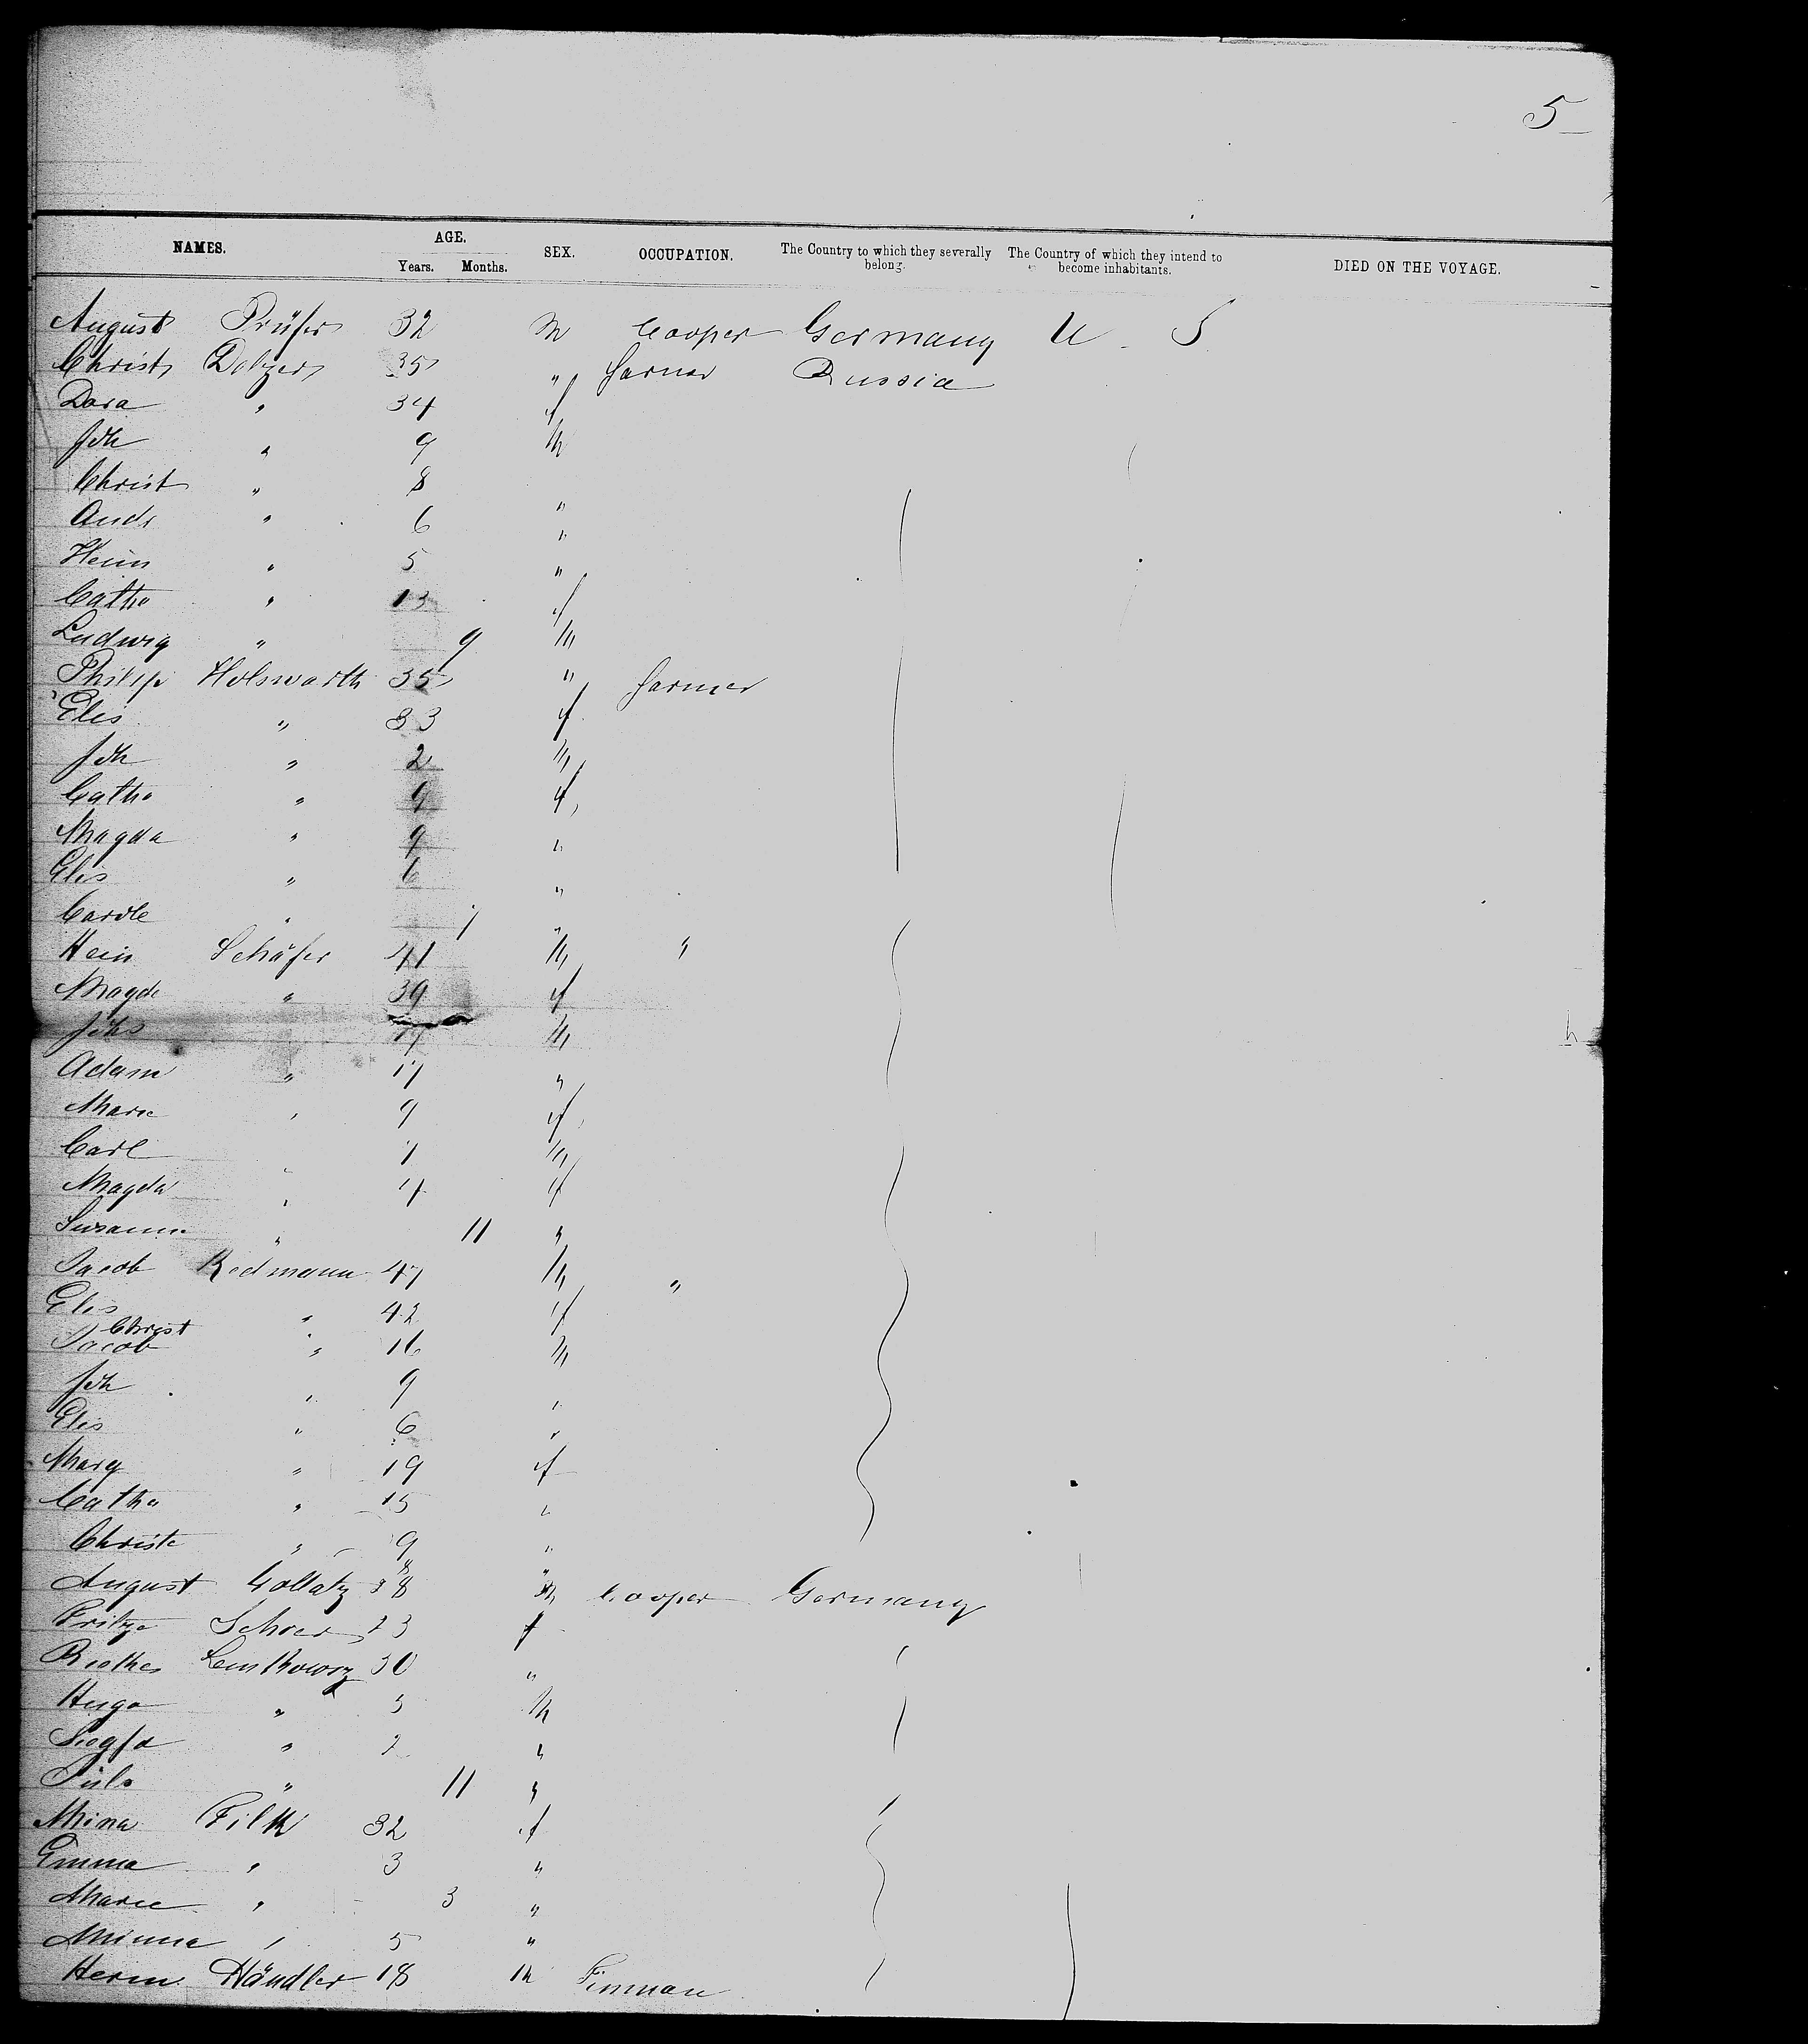 5
NAMES. AGE. SEX. OCCUPATION. The Country to which they severally belong. The Country of which they intend to become inhabitants. DIED ON THE VOYAGE.
Years. Months.
August Prüfer 32 m Cooper Germany U. S
Christ Dolzer 35 " farmer Russia
Dora " 34 f
Joh " 9 m
Christ " 8 "
Andr " 6 "
Hein " 5 "
Catha " 13 f
Ludwig " 9 m
Philip Holswarth 35 " farmer
Elis " 33 f
Joh " 2 m
Catha " 9 f
Magda " 9 "
Elis " 6 "
Carole " "
Hein Schäfer 41 m "
Magde " 39 f
Johs m
Adam " 17 "
Marie " 9 f
Carl " 7 m
Magda " 4 f
Susanne " 11 "
Jacob Redmann 47 m "
Elis " 42 f
Christ "
Jacob " 16 m
Joh " 9 "
Elis " 6 "
Marg " 19 f
Catha " 15 "
Christe " 9 "
August Gollatz 38 m Cooper Germany
Fritze Scherer 23 f
30 "
Hugo " 3 m
Siegfd " 2 "
Juls " 11 "
Mina Filk 32 f
Emma " 3 "
Marie " 3 "
Minna " 5 "
Herm Händler 18 m